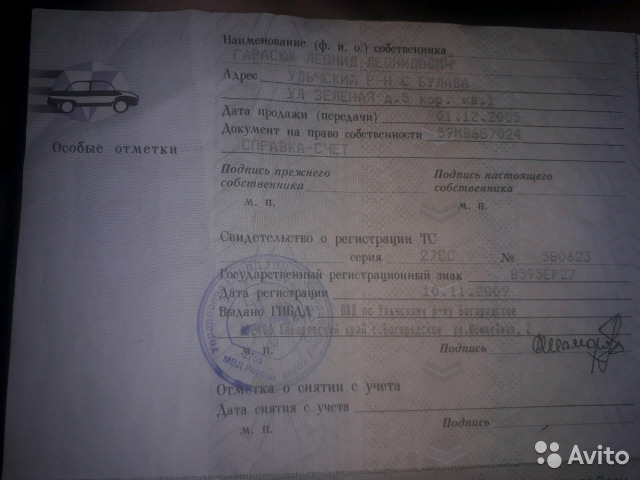 Наименование (ф. и. о.) собственника
ГАРАСЮК ЛЕОНИД ЛЕОНИДОВИЧ
Адрес УЛЬЧСКИЙ Р-Н С БУЛАВА
УЛ ЗЕЛЕНАЯ д.5 кор. кв.1
Дата продажи (передачи) 01.12.2005
Документ на право собственности 59МВ687024
СПРАВКА-СЧЕТ
Особые отметки
Подпись прежнего собственника
Подпись настоящего собственника
м. п.
м. п.
Свидетельство о регистрации ТС
серия 27СС № 580623
Государственный регистрационный знак В595ЕР27
Дата регистрации 10.11.2009
Выдано ГИБДД ОВД по Ульчскому р-ну Богородское
Хабаровский край с.Богородское ул. 2
м. п.
Подпись
МВД России
Отметка о снятии с учета
Дата снятия с учета
м. п.
Подпись
Avito